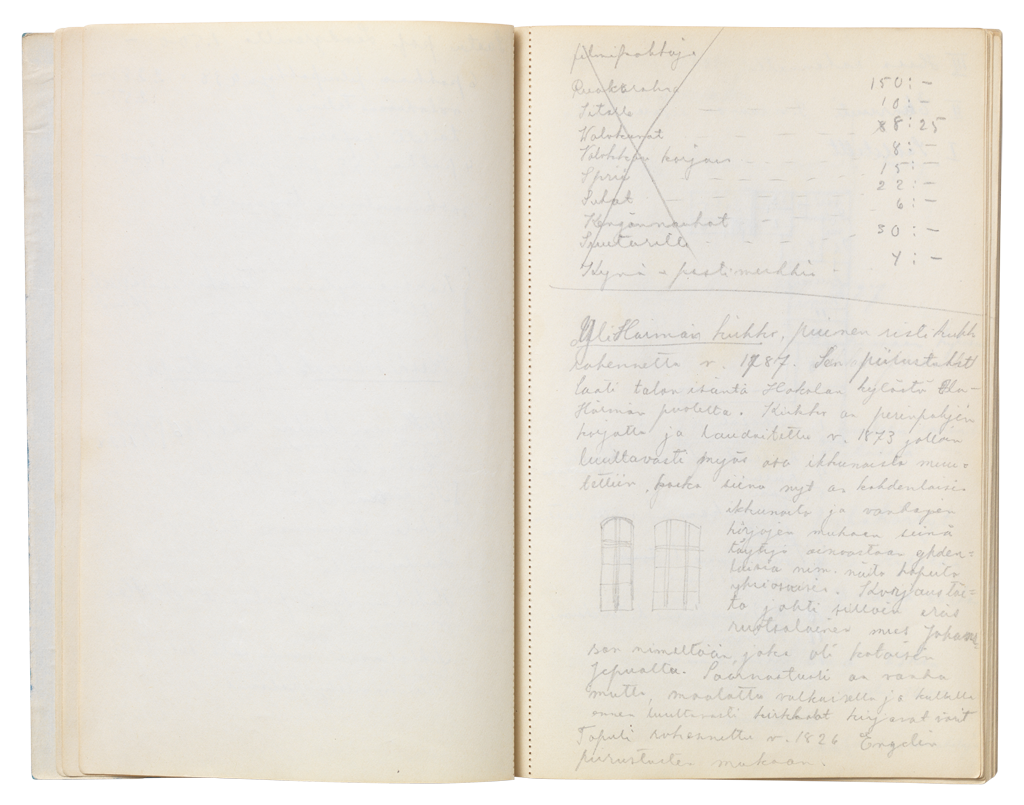 filmipohtoja
Ruokaraha 150:—
10:—
Valokuvat 88:25
korjaus 8:—
Sprii 15:—
22:—
Kengännauhat 6:—
30:—
Kynä postimerkkiä 4:—
YliHärmän kirkko, puinen ristikirkk
rakennettu v. 1787. Sen piirustukset
laati talon isäntä Hakolan kylästä Yli-
Härmän puolelta. Kirkko on perinpohjin
korjattu ja laudoitettu v. 1873 jolloin
luultavasti myös osa ikkunoista muu-
tettiin, koska siinä nyt on kahdenlaisia
ikkunoita ja vanhojen
kirjojen mukaan siinä
täytyi ainoastaan yhden-
laisia nim. näitä kapeita
yksiosaisia. Korjaustöi-
tä johti silloin eräs
ruotsalainen mies Johans-
son nimeltään, joka oli kotoisin
Jepualta. Saarnastuoli on vanha
mutta maalattu valkoisella ja kullalla
ennen luultavasti kirkkaat kirjavat värit
Tapuli rakennettu v. 1826 Engelin
piirustusten mukaan.